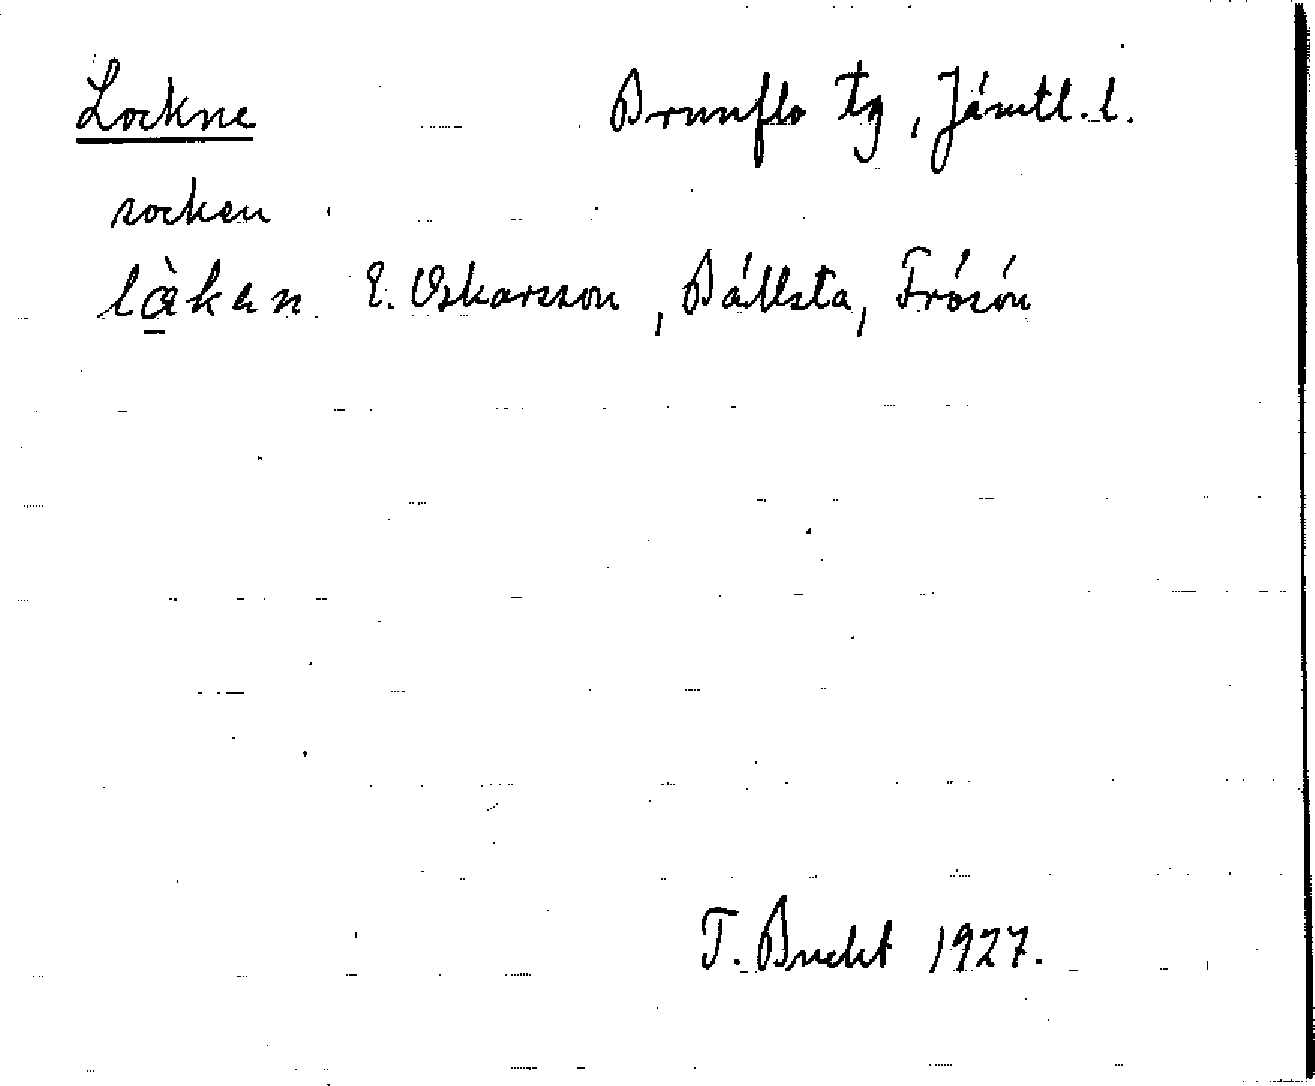 Lockne Brunflo tg, Jämtl. l.
socken
là̱kan E. Oskarsson, Bällsta, Frösön
T. Bucht 1927.